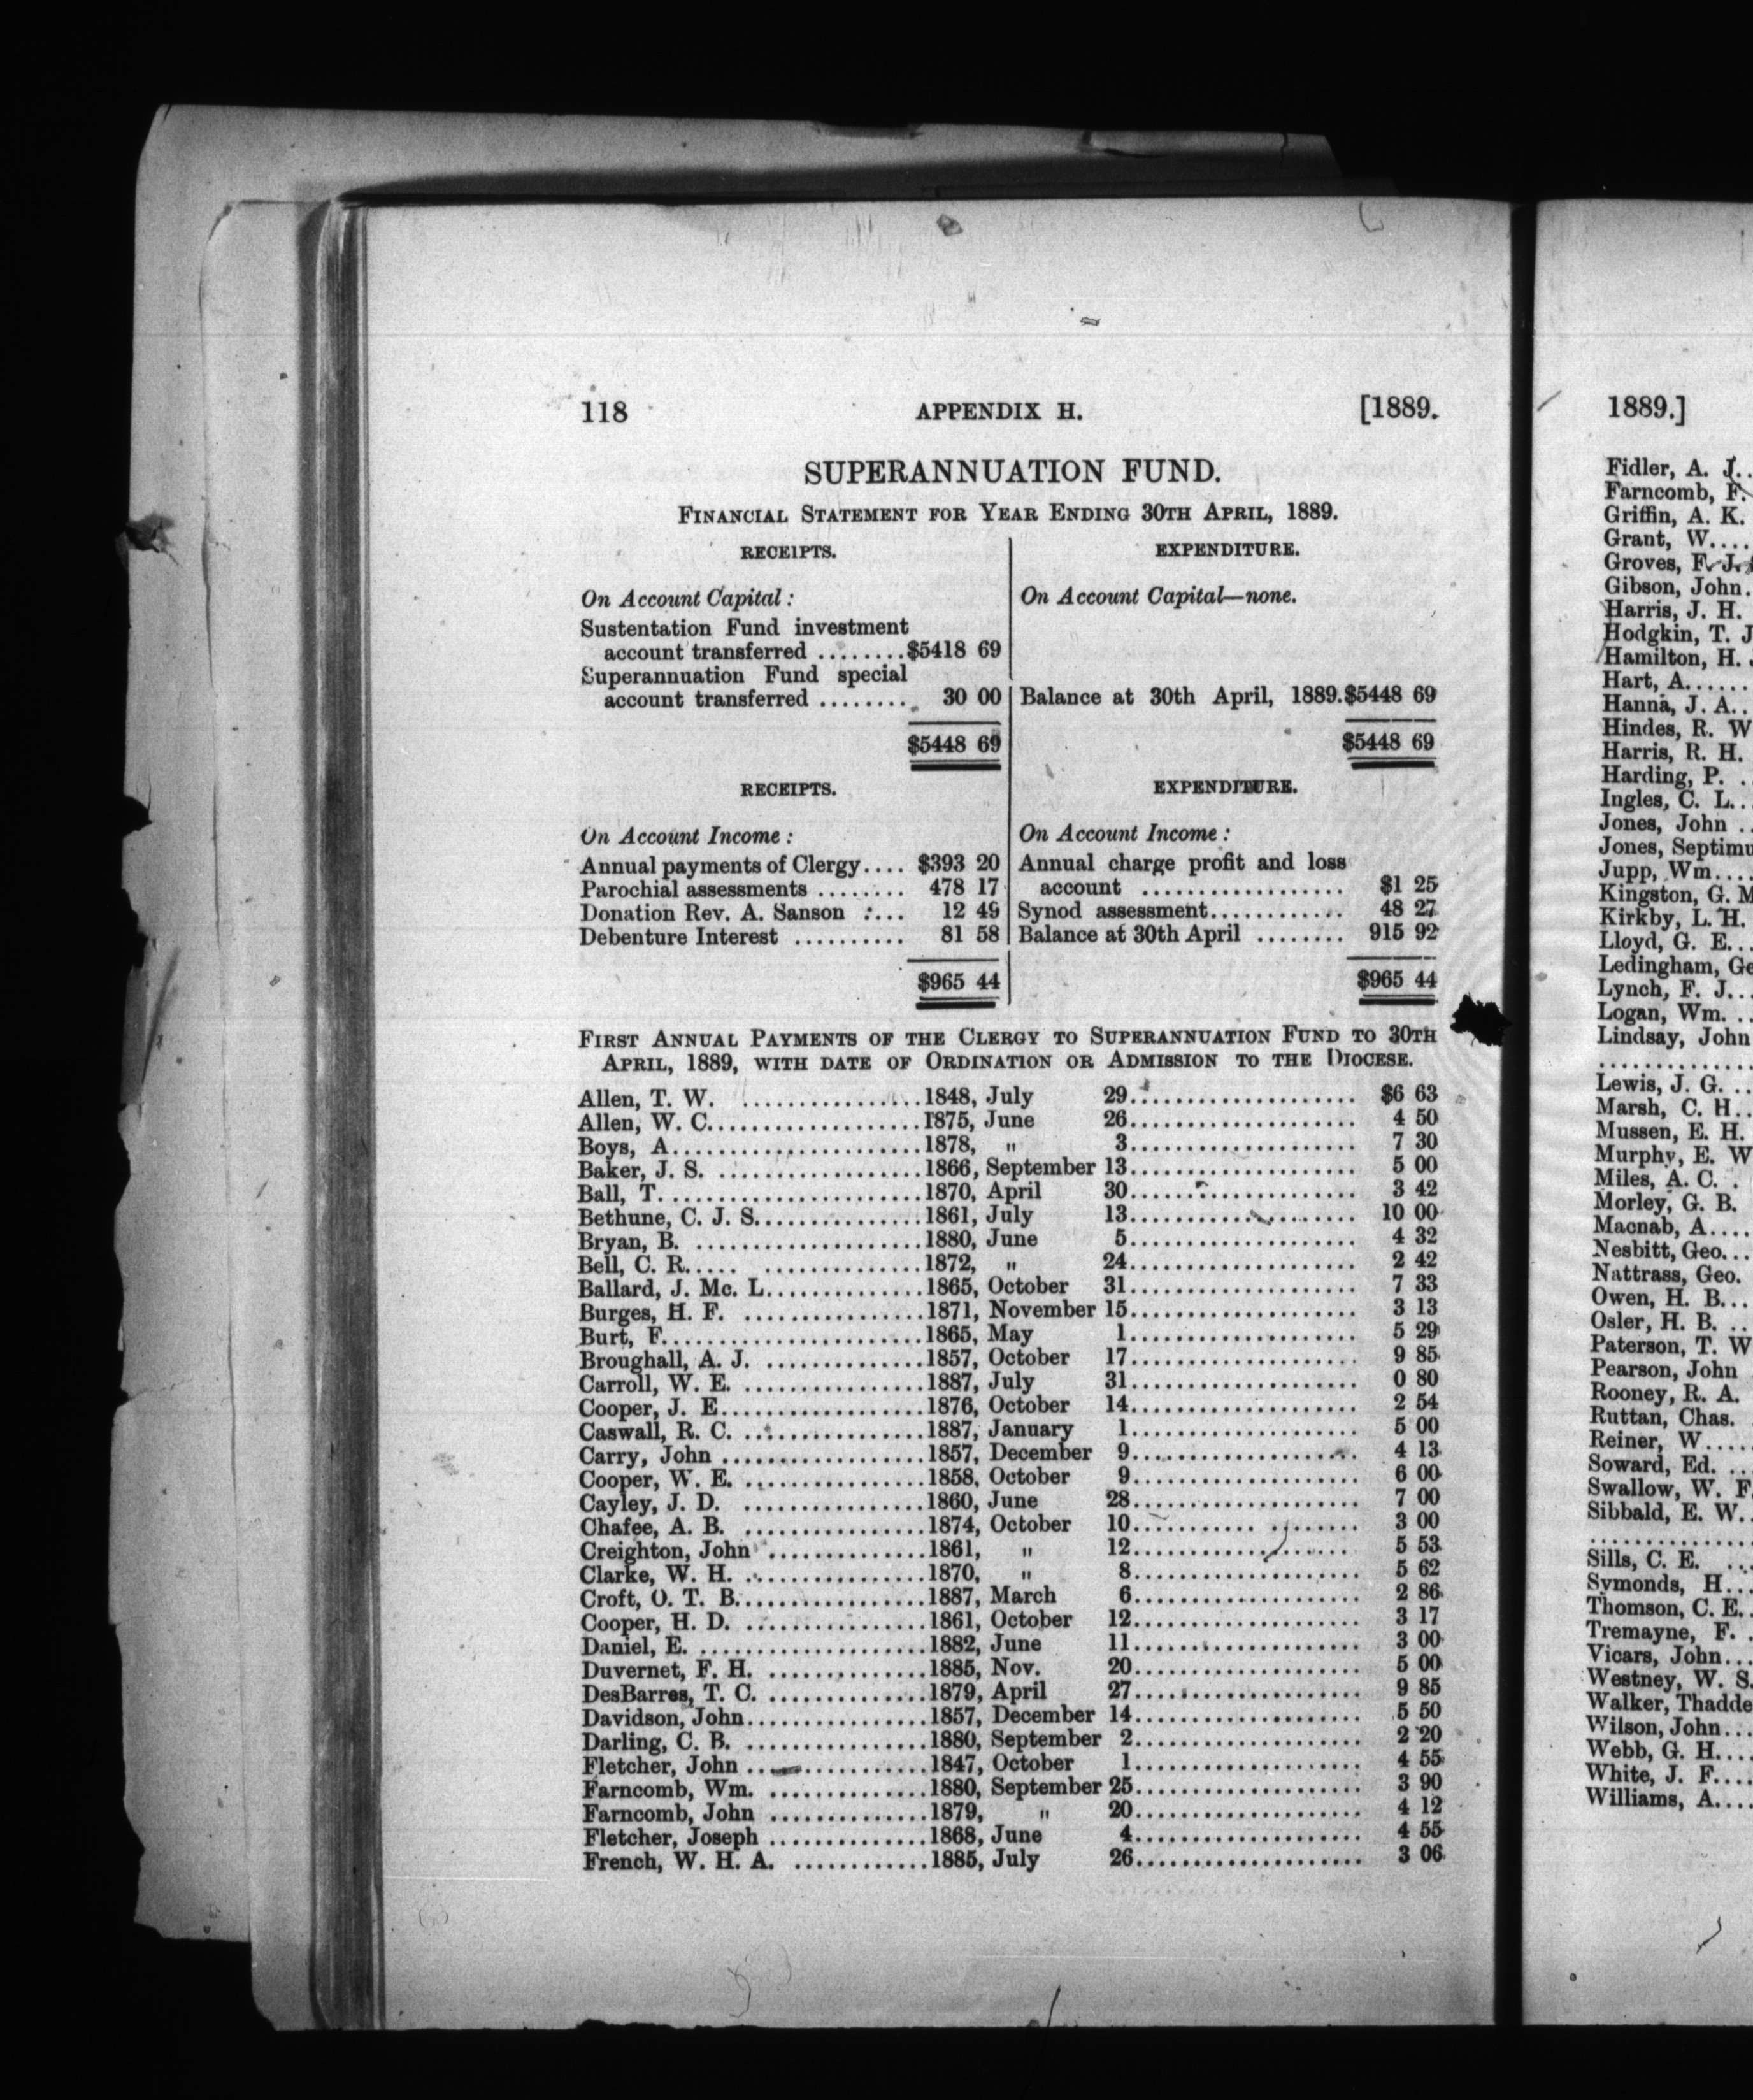 118 APPENDIX H. [1889.
SUPERANNUATION FUND.
FINANCIAL STATEMENT FOR YEAR ENDING 30TH APRIL, 1889.
RECEIPTS.
On Account Capital :
Sustentation Fund investment
account transferred ........$5418 69
Superannuation Fund special
account transferred ........ 30 00
$5448 69
EXPENDITURE.
On Account Capital—none.
Balance at 30th April, 1889.$5448 69
$5448 69
RECEIPTS.
On Account Income :
Annual payments of Clergy.... $393 20
Parochial assessments ........ 478 17
Donation Rev. A. Sanson .... 12 49
Debenture Interest .......... 81 58
$965 44
EXPENDITURE.
On Account Income :
Annual charge profit and loss
account .................. $1 25
Synod assessment............ 48 27
Balance at 30th April ........ 915 92
$965 44
FIRST ANNUAL PAYMENTS OF THE CLERGY TO SUPERANNUATION FUND TO 30TH
APRIL, 1889, WITH DATE OF ORDINATION OR ADMISSION TO THE DIOCESE.
Allen, T. W. ................1848, July 29.................... $6 63
Allen, W. C...................1875, June 26.................... 4 50
Boys, A.......................1878, " 3.................... 7 30
Baker, J. S. ..................1866, September 13.................... 5 00
Ball, T.......................1870, April 30.................... 3 42
Bethune, C. J. S...............1861, July 13.................... 10 00
Bryan, B. ....................1880, June 5.................... 4 32
Bell, C. R..... ..............1872, " 24.................... 2 42
Ballard, J. Mc. L..............1865, October 31.................... 7 33
Burges, H. F. ................1871, November 15.................... 3 13
Burt, F.......................1865, May 1.................... 5 29
Broughall, A. J. ..............1857, October 17.................... 9 85
Carroll, W. E. ................1887, July 31.................... 0 80
Cooper, J. E..................1876, October 14.................... 2 54
Caswall, R. C. ................1887, January 1.................... 5 00
Carry, John ..................1857, December 9.................... 4 13
Cooper, W. E. ................1858, October 9.................... 6 00
Cayley, J. D. ................1860, June 28.................... 7 00
Chafee, A. B. ................1874, October 10.................... 3 00
Creighton, John ..............1861, " 12.................... 5 53
Clarke, W. H. ................1870, " 8.................... 5 62
Croft, O. T. B.................1887, March 6.................... 2 86
Cooper, H. D. ................1861, October 12.................... 3 17
Daniel, E. ....................1882, June 11.................... 3 00
Duvernet, F. H. ..............1885, Nov. 20.................... 5 00
DesBarres, T. C. ..............1879, April 27.................... 9 85
Davidson, John................1857, December 14.................... 5 50
Darling, C. B. ................1880, September 2.................... 2 20
Fletcher, John ................1847, October 1.................... 4 55
Farncomb, Wm. ..............1880, September 25.................... 3 90
Farncomb, John ..............1879, " 20.................... 4 12
Fletcher, Joseph ..............1868, June 4.................... 4 55
French, W. H. A. ............1885, July 26.................... 3 06
1889.]
Fidler, A. J..
Farncomb, F.
Griffin, A. K.
Grant, W....
Groves, F. J.
Gibson, John.
Harris, J. H.
Hodgkin, T. J
Hamilton, H.
Hart, A......
Hanna, J. A..
Hindes, R. W
Harris, R. H.
Harding, P. .
Ingles, C. L..
Jones, John ..
Jones, Septimu
Jupp, Wm....
Kingston, G. M
Kirkby, L. H.
Lloyd, G. E...
Ledingham, Ge
Lynch, F. J...
Logan, Wm. ..
Lindsay, John
..............
Lewis, J. G. ..
Marsh, C. H..
Mussen, E. H.
Murphy, E. W
Miles, A. C. .
Morley, G. B.
Macnab, A....
Nesbitt, Geo...
Nattrass, Geo.
Owen, H. B...
Osler, H. B. ..
Paterson, T. W
Pearson, John
Rooney, R. A.
Ruttan, Chas.
Reiner, W....
Soward, Ed. ..
Swallow, W. F
Sibbald, E. W.
..............
Sills, C. E. ...
Symonds, H...
Thomson, C. E.
Tremayne, F. .
Vicars, John...
Westney, W. S.
Walker, Thadde
Wilson, John...
Webb, G. H....
White, J. F....
Williams, A....